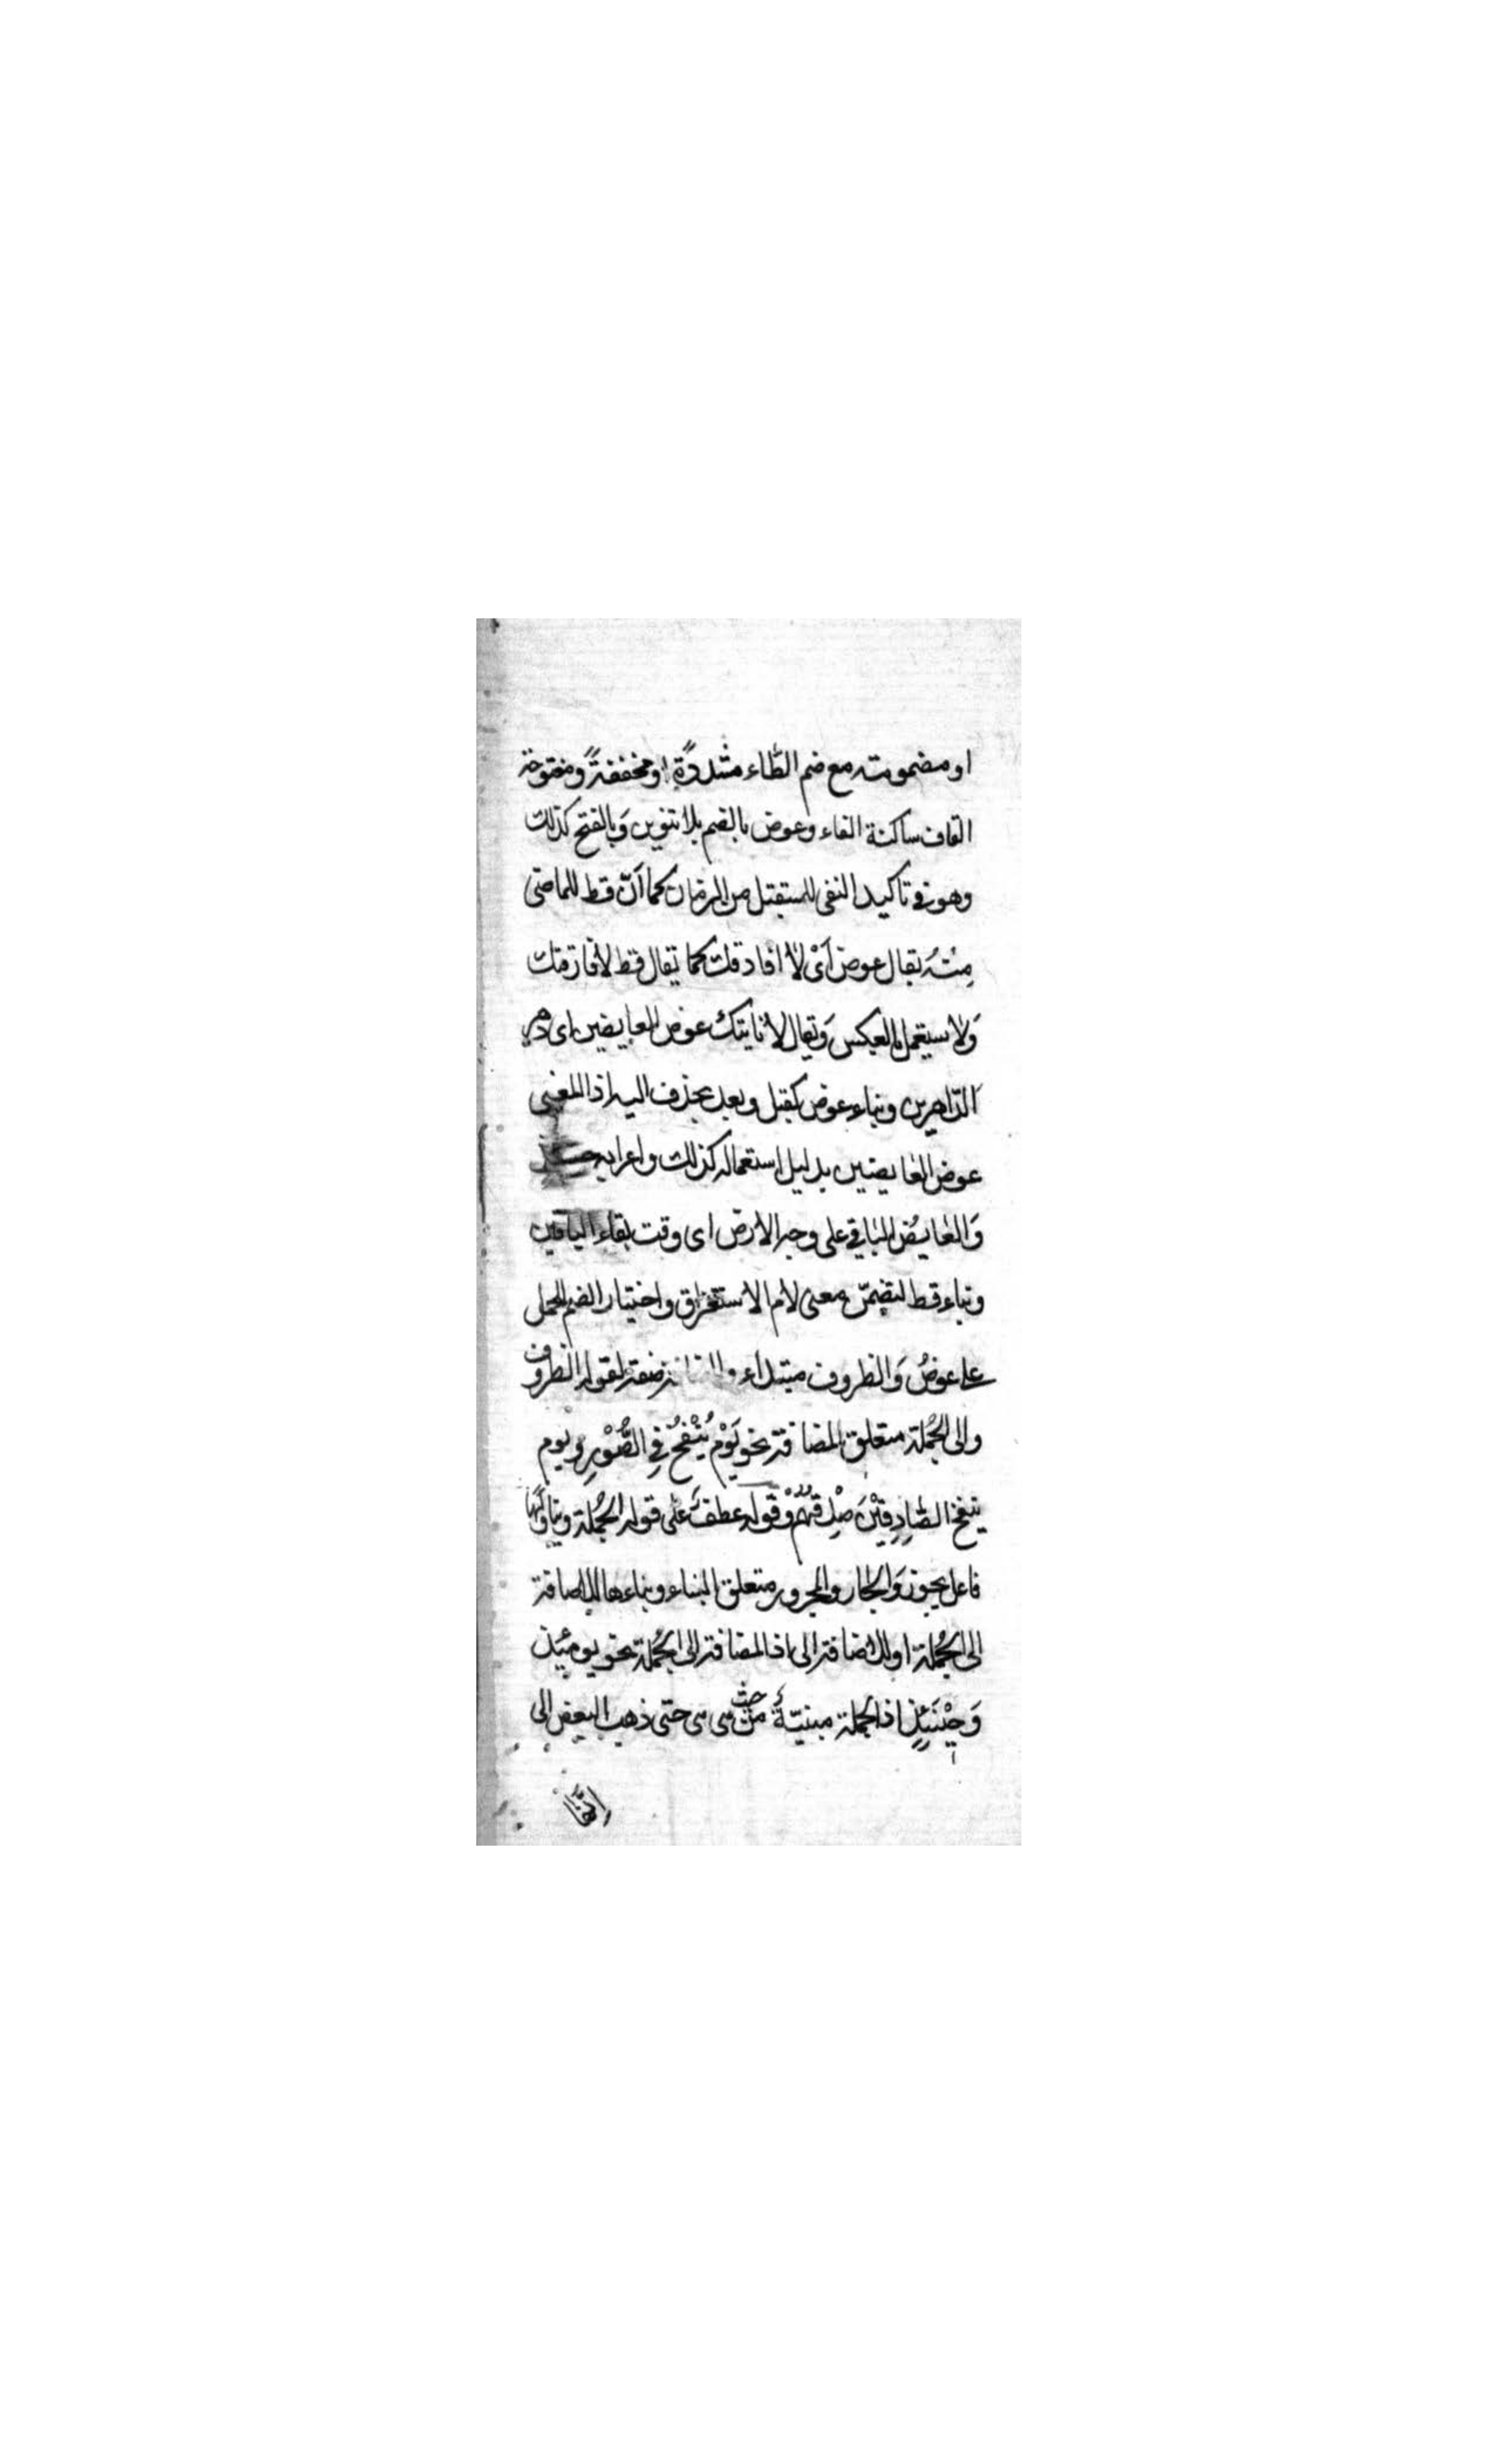 او مضمومته مع ضم الطّاء مشددةً او مخففةً ومفتوحة
القاف ساكنة الفاء وعوض بالضم بلا تنوين وَبالفتح كذلك
وهو فى تاكيد النفى للمستقبل من الزمان كما اَنّ قط للماضى
مِنْهُ يقال عوض اَىْ لا افارقك كما يقال قط لا فارقتك
وَلا يستعمل بالعكس وَيقال لا ناتيك عوض العايضين اى دهر
الدّاهرين وبناء عوض كقبل وبعد بحذف اليه اذ المعنى
عوض العايضين بدليل استعماله كذلك واعرابه
وَالعايض الباقى على وجه الارض اى وقت بقاء الباقين
وبناء قط لتضمّن معنى لام الاستغراق واختيار الضم للحمل
على عوضُ وَالظروف مبتداء صفة لقوله الظروف
والى الجُملة متعلق المضافة نحو يَوْم يُنْفَخُ فِى الصُّوْرِ ويوم
ينفع الصَّادِقِيْنَ صِدْقُهُمْ وَقوله عطف عَلى قوله الجُملة وبناؤها
فاعل يجوز وَالجار والمجرور متعلق البناء وبناءها للاضافة
الى الجُملة او للاضافة الى اذ المضافة الى الجُملة نحو يومئذ
وَحِيْنَئِذٍ اذ الجملة مبنيّة من حيث هى هى حتى ذهب البعض الى